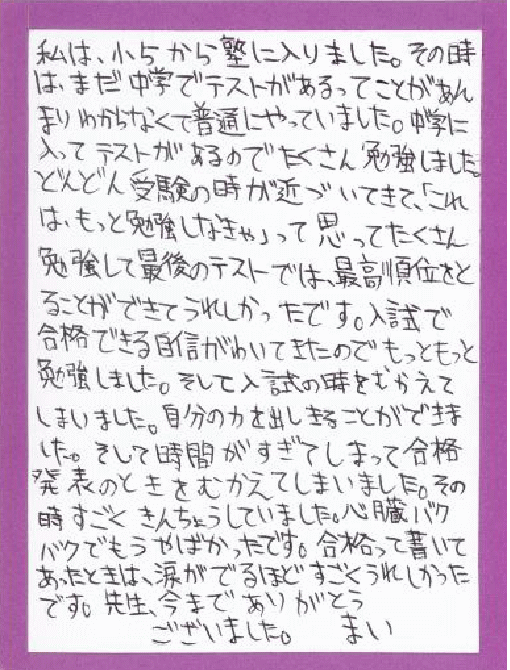 私は、小5から塾に入りました。その時
は、まだ中学でテストがあるってことがあん
まりわからなくて普通にやっていました。中学に
入ってテストがあるのでたくさん勉強しました。
どんどん受験の時が近づいてきて、「これ
は、もっと勉強しなきゃ」って思ってたくさん
勉強して最後のテストでは、最高順位をと
ることができてうれしかったです。入試で
合格できる自信がわいてきたのでもっともっと
勉強しました。そして入試の時をむかえて
しまいました。自分の力を出しきることができま
した。そして時間がすぎてしまって合格
発表のときをむかえてしまいました。その
時すごくきんちょうしていました。心臓バク
バクでもうやばかったです。合格って書いて
あったときは、涙がでるほどすごくうれしかった
です。先生、今までありがとう
ございました。 まい